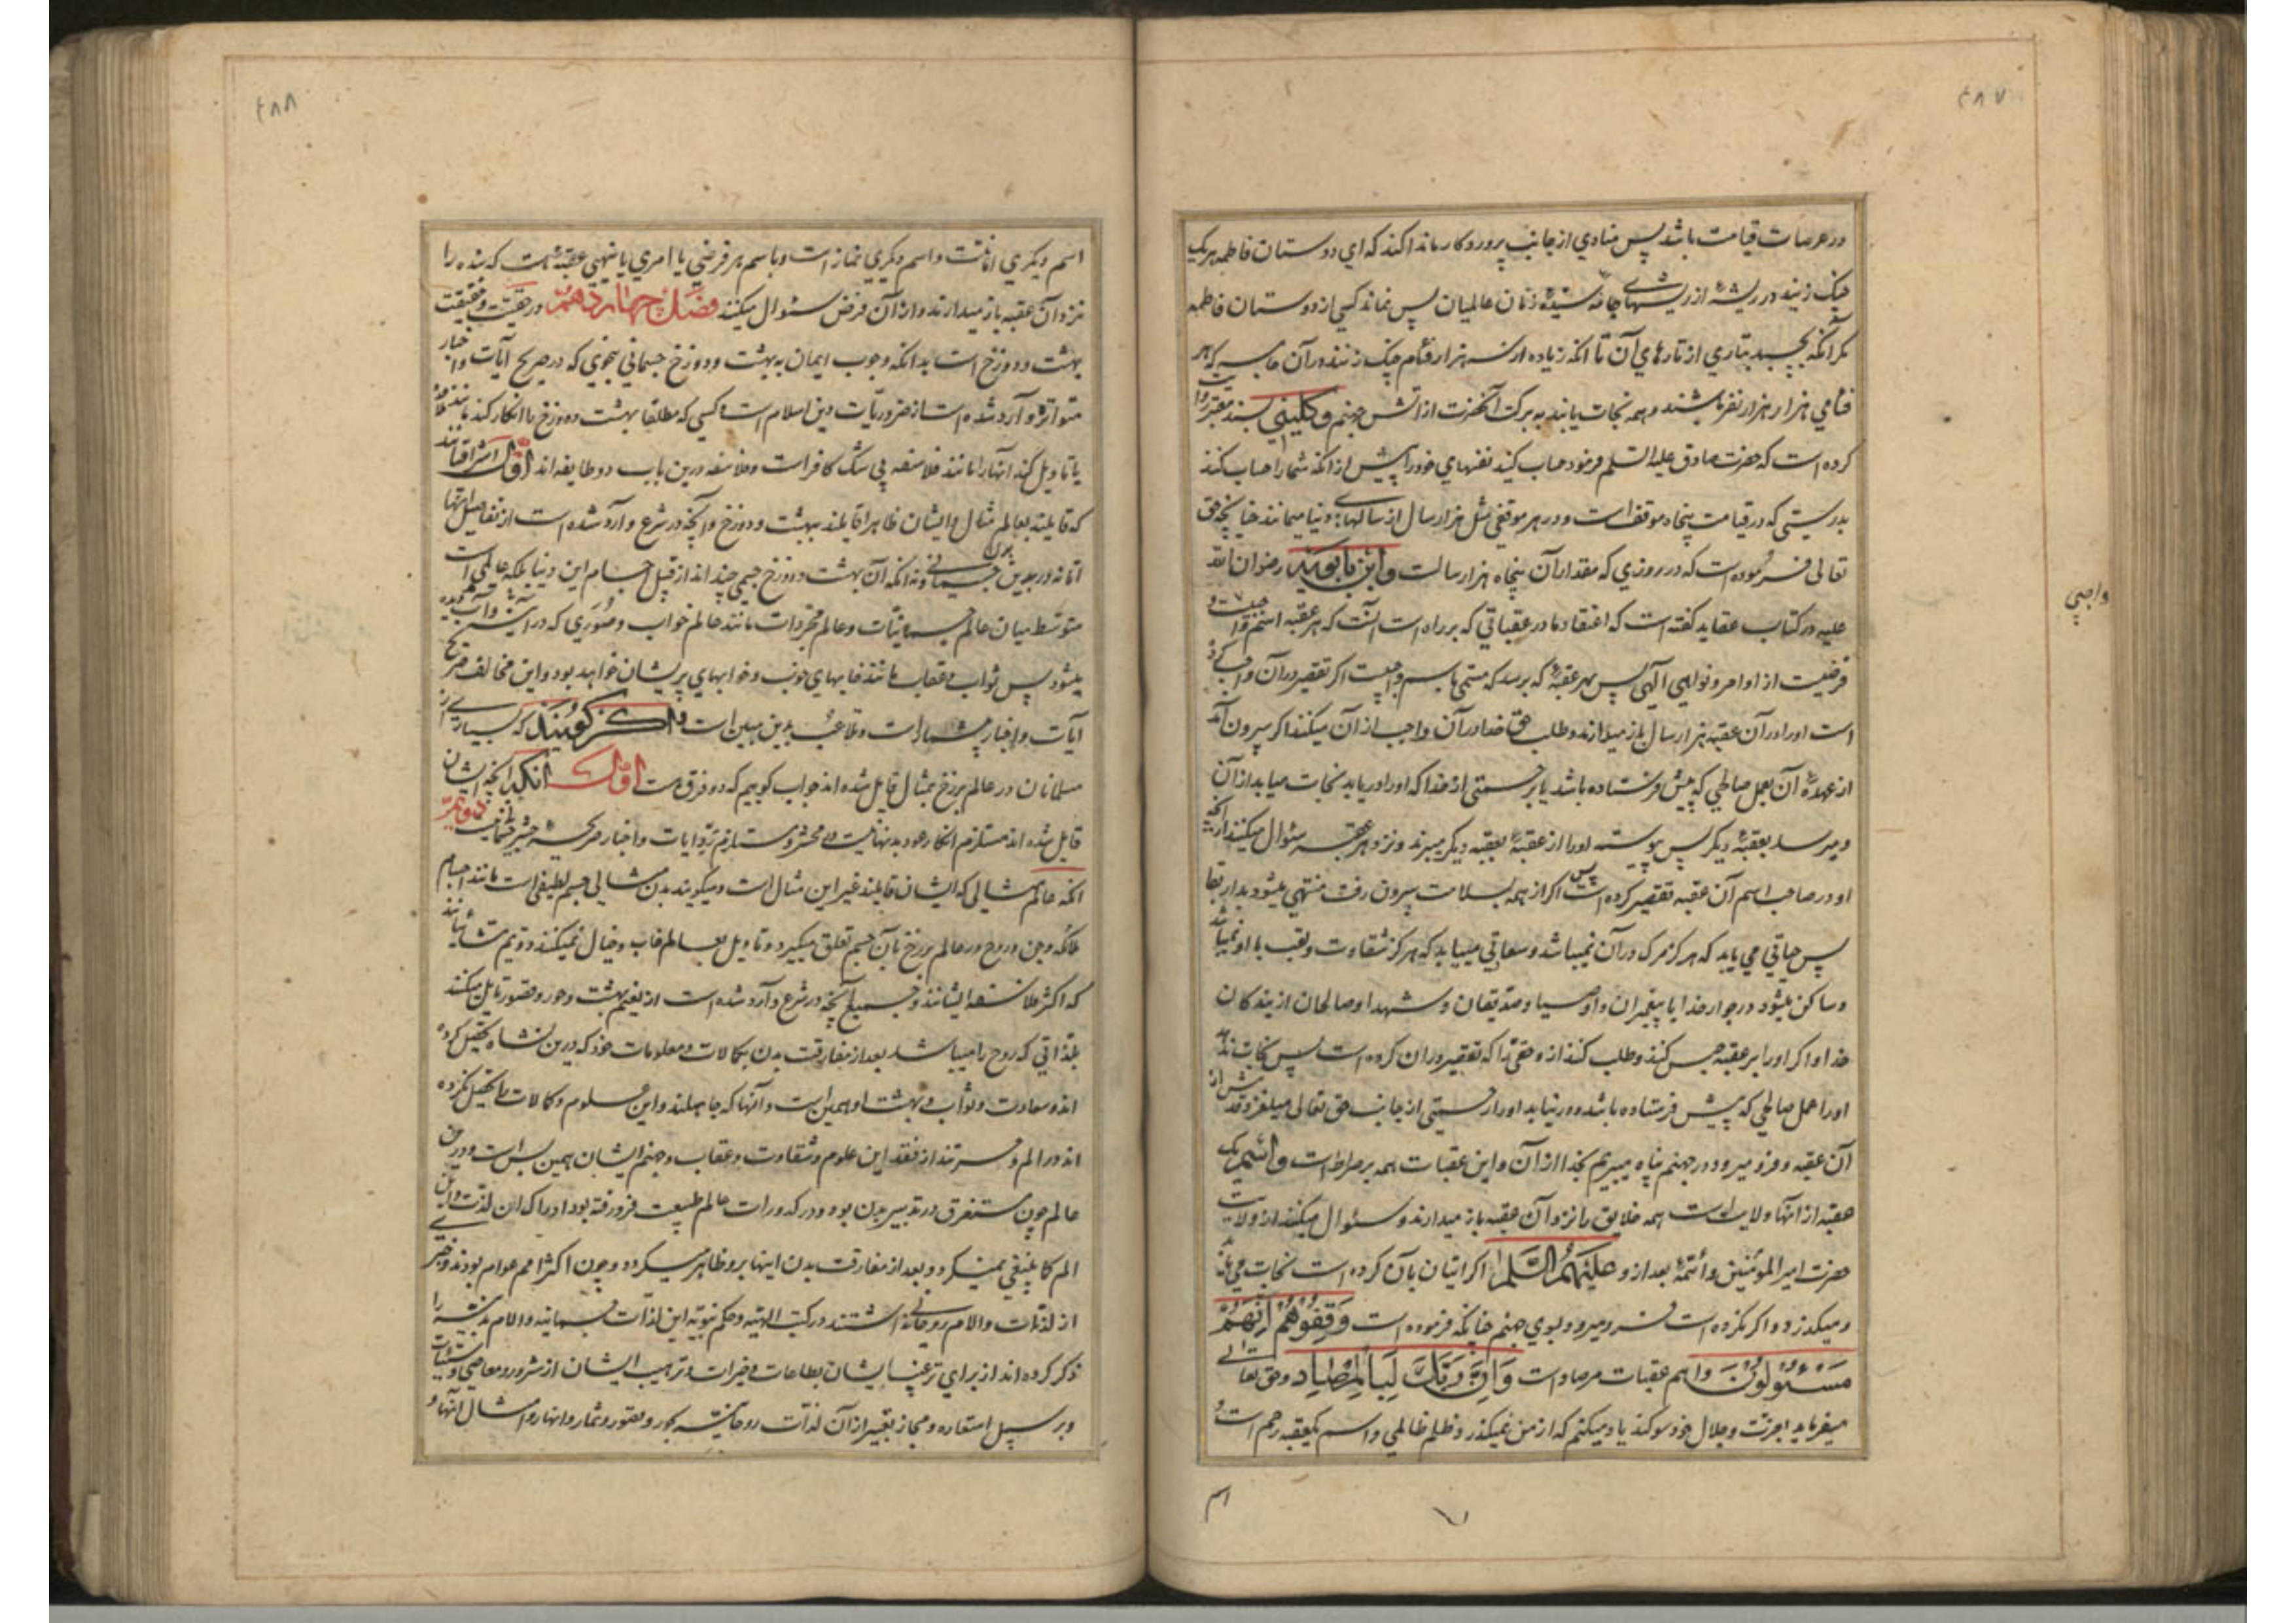 ۴۸۷
در عرصات قیامت باشد پس منادی از جانب پروردکار ما ندا کند که ای دوستان فاطمه هر یک
چنک زنید در ریشهٔ از ریشهای جامهٔ سیدهٔ زنان عالمیان پس نماند کسی از دوستان فاطمه
مکر آنکه بچسبد بتاری از تارهای آن تا آنکه زیاده از سه هزار فئام چنک زنند در آن جامه که هر
فئامی هزار هزار نفر باشند و همه نجات یابند به برکت آنحضرت از اتش جهنم و کلینی بسند معتبر روایت
کرده است که حضرت صادق علیه السلم فرمود حساب کنید نفسهای خود را پیش از انکه شما را حساب کنند
بدرستی که در قیامت پنجاه موقف است و در هر موقفی مثل هزار سال از سالهای دنیا میمانند چنانچه حق
تعالی فرموده است که در روزی که مقدار آن پنجاه هزار سالست و ابن بابویه رضوان الله
علیه در کتاب عقاید کفته است که اعتقاد ما در عقباتی که بر راه است آنست که هر عقبه اسم واجبیست و
واجبی
فرضیست از اوامر و نواهی آلهی پس بهر عقبهٔ که برسد که مسمی باسم واجبست اکر تقصیر در آن واجب کرده
است او را در آن عقبه هزار سال باز میدارند و طلب حق خدا در آن واجب از آن میکنند اکر بیرون آمد
از عهدهٔ آن بعمل صالحی که پیش فرستاده باشد یا برحمتی از خدا که او را دریابد نجات میابد از آن
و میرسد بعقبهٔ دیکر پس پیوسته او را از عقبهٔ بعقبه دیکر میبرند و نزد هر عقبه سئوال میکنند از آنچه
او در صاحب اسم آن عقبه تقصیر کرده است پس اکر از همه بسلامت بیرون رفت منتهی میشود بدار بقا
پس حیاتی می یابد که هرکز مرک در آن نمیباشد و سعادتی مییابد که هرکز شقاوت و تعب با او نمیباشد
و ساکن میشود در جوار خدا با پیغمبران و اوصیا و صدیقان و شهدا و صالحان از بندکان
خدا و اکر او را بر عقبه حبس کنند و طلب کنند از و حقی را که تقصیر در ان کرده است پس نجات ندهد
او را عمل صالحی که پیش فرستاده باشد و در نیابد او را رحمتی از جانب حق تعالی میلغزد قدمش از
آن عقبه و فرو میرود در جهنم پناه میبریم بخدا از آن و این عقبات همه بر صراط است و اسم یک
عقبه از آنها ولایت است همه خلایق را نزد آن عقبه باز میدارند و سئوال میکنند از ولایت
حضرت امیر المومنین و ائمهٔ بعد از و علیهم السلم اکر اتیان بآن کرده است نجات می یابد
و میکذرد و اکر نکرده است فرو میرود بسوی جهنم چنانکه فرموده است وَقِفُوهُمْ اِنَّهُمْ
مَسْئُولُونَ و اهم عقبات مرصاد است وَاِنَّ رَبَّكَ لَبِالْمِرْصَادِ و حق تعالی
میفرماید بعزت و جلال خود سوکند یاد میکنم که از من نمیکذرد ظلم ظالمی و اسم یکعقبه رحم است و
اسم
۴۸۸
اسم دیکری امانت و اسم دیکری نماز است و باسم هر فرضی یا امری یا نهیی عقبهٔ هست که بنده را
نزد آن عقبه باز میدارند و از آن فرض سئوال میکنند فصل چهاردهم در حقیت و حقیقت
بهشت و دوزخ است بدانکه وجوب ایمان به بهشت و دوزخ جسمانی بنحوی که در صریح آیات و اخبار
متواتره وارد شده است از ضروریات دین اسلام است و کسی که مطلقا بهشت و دوزخ را انکار کند مانند ملاحده
یا تاویل کند آنها را مانند فلاسفه بی شک کافر است و فلاسفه درین باب دو طایفه اند اول اشراقیانند
که قایلند بعالم مثال و ایشان ظاهرا قایلند ببهشت و دوزخ و آنچه در شرع وارد شده است از تفاصیل آنها
اما نه در بدن جسمانی و نه آنکه آن بهشت و دوزخ جسمی چند اند از قبیل اجسام این دنیا بلکه عالمی است
متوسط میان عالم جسمانیات و عالم مجردات مانند عالم خواب و صوری که در آینه و آب دیده
میشود پس ثواب و عقاب مانند خابهای خوب و خوابهای پریشان خواهد بود و این مخالف صریح
آیات و اخبار بیشمار است و تلاعب بدین مبین است و اکر کویند که بسیاری از
مسلمانان در عالم برزخ بمثال قایل شده اند جواب کوییم که دو فرق هست اول آنکه آنچه ایشان
قایل شده اند مستلزم انکار عود بدنها نیست در محشر و مستلزم رد ایات و اخبار صریحه حشر جسمانی نیست دویم
آنکه عالم مثالی که ایشان قایلند غیر این مثال است و میکویند بدن مثالی جسم لطیفی است مانند اجسام
ملائکه و جن و روح در عالم برزخ بآن جسم تعلق میکیرد و تاویل بعالم خاب و خیال نمیکنند دویم مشائیانند
که اکثر فلاسفه ایشانند و جمیع آنچه در شرع وارد شده است از نعیم بهشت و حور و قصور تاویل میکنند
بلذاتی که روح را میباشد بعد از مفارقت بدن بکمالات و معلومات خود که درین نشاه تحصیل کرده
اند و سعادت و ثواب و بهشت او همین است و آنها که جاهلند و این علوم و کمالات را تحصیل نکرده
اند در الم و حسرتند از فقد این علوم و شقاوت و عقاب و جهنم ایشان همین بس است و درین
عالم چون مستغرق در تدبیر بدن بود و در کدورات عالم طبیعت فرو رفته بود ادراک ان لذت و این
الم کما ینبغی نمیکرد و بعد از مفارقت بدن اینها برو ظاهر میکردد و چون اکثر امم عوام بودند و خبر
از لذات و الام روحانی نداشتند در کتب الهیه و حکم نبویه این لذات جسمانیه و الام بدنیه را
ذکر کرده اند از برای ترغیب ایشان بطاعات و خیرات و ترهیب ایشان از شرور و معاصی و سیئات
و بر سبیل استعاره و مجاز تعبیر از آن لذات روحانیه بحور و قصور و ثمار و انهار و امثال آنها و